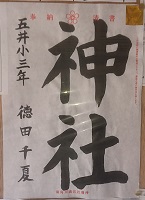 奉納
神社
五井小三年
徳田千夏